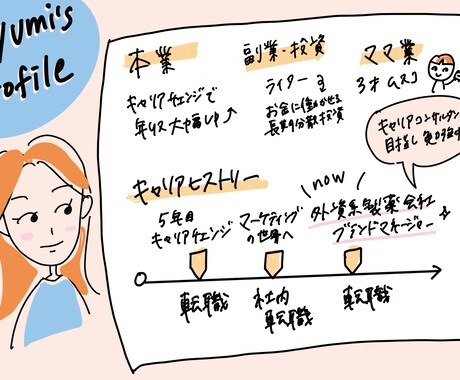 yumi's
rofile
本業
キャリアチェンジで
年収大幅UP↑
副業・投資
ライター &
お金に働かせる
長期分散投資
ママ業
3才ムスコ
キャリアコンサルタン
目指し勉強中
キャリアヒストリー
5年目
キャリアチェンジ
マーケティング
の世界へ
now
外資系製薬会社
ブランドマネージャー
転職
社内
転職
転職